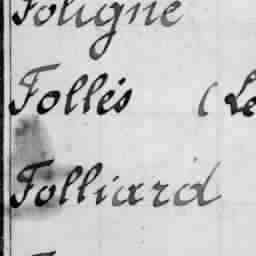 Foligne
Follés (Le
Folliard